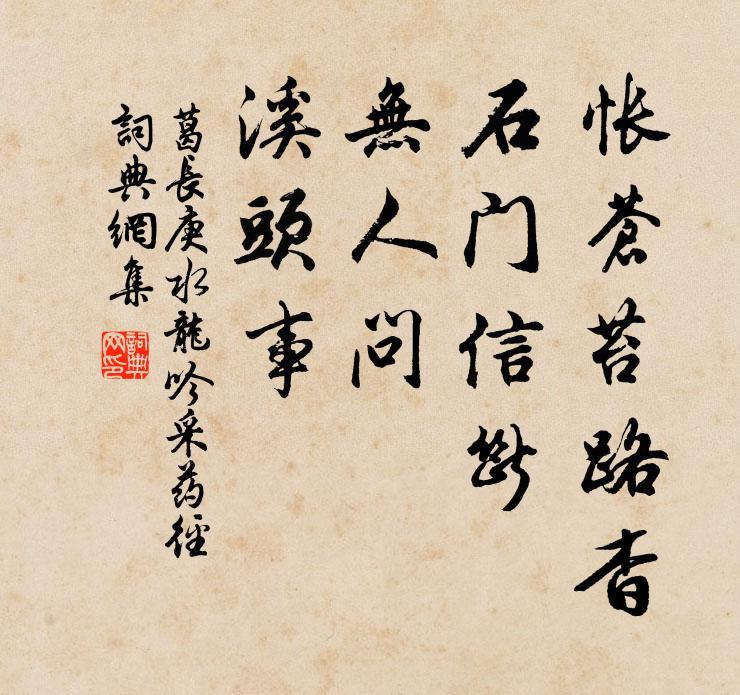 怅蒼苔路杳
石門信斷
無人問
溪頭事
葛長庚水龍吟采药徑
詞典網集
詞典网印